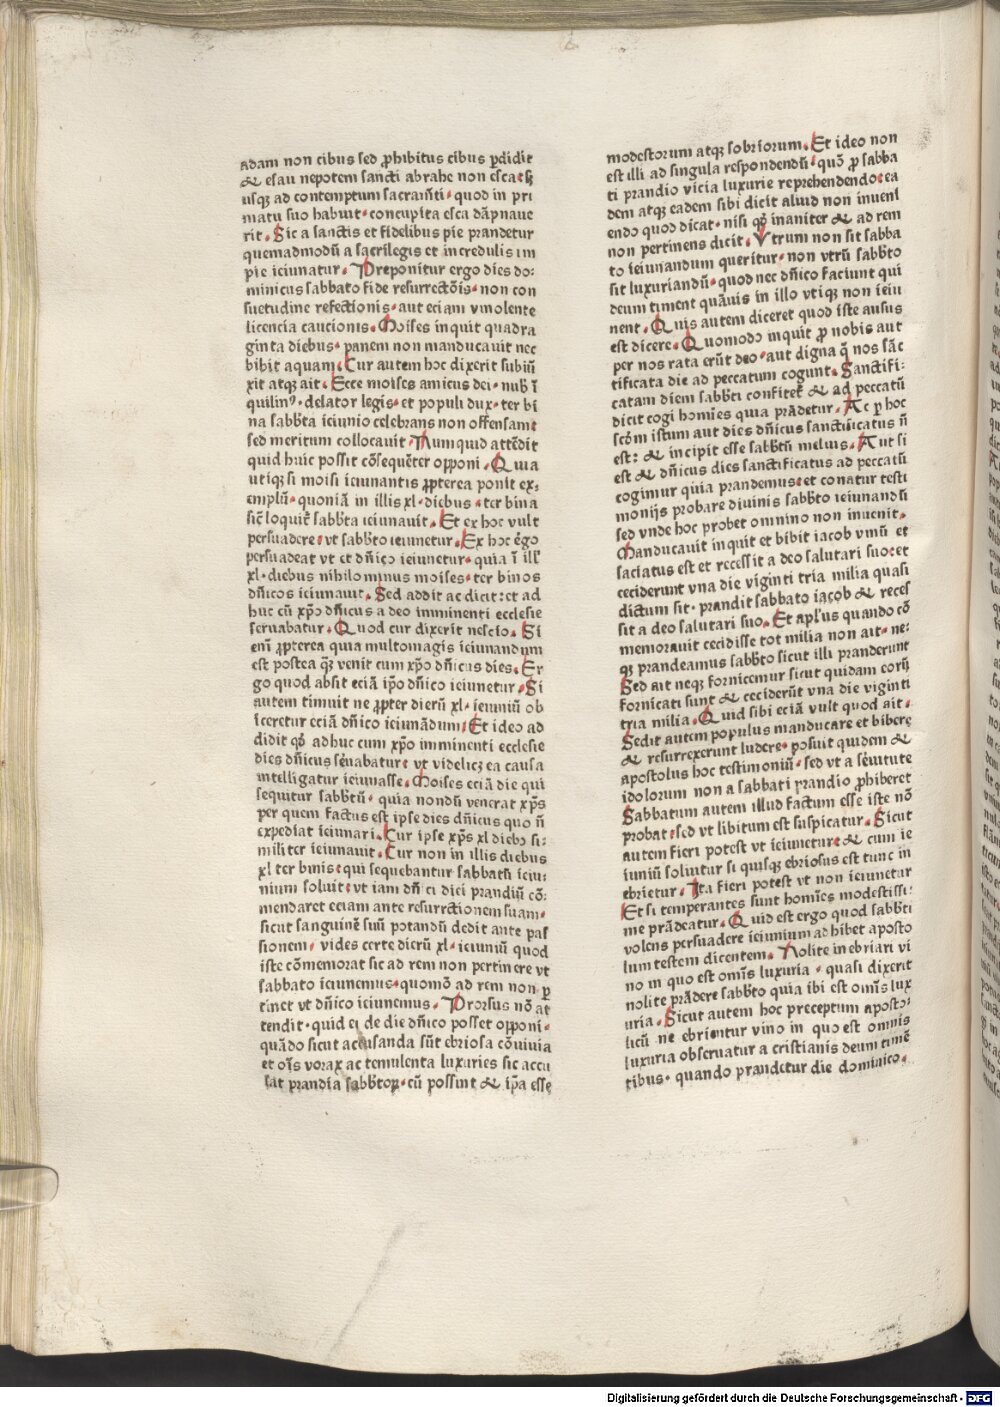 adam non cibus sed ꝓhibitus cibus ꝑdidit
& esau nepotem sancti abrahe non esca sꝫ
usqꝫ ad contemptum sacramēti· quod in pri
matu suo habuit· concupita esca dāpnaue
rit. Sic a sanctis et fidelibus pie prandetur
quemadmodū a sacrilegis et incredulis im
pie ieiunatur. Preponitur ergo dies do:
minicus sabbato fide resurrectōis· non con
suetudine refectionis· aut eciam vinolente
licencia caucionis. Moises inquit quadra
ginta diebus· panem non manducauit nec
bibit aquam. Cur autem hoc dixerit subiū
xit atqꝫ ait. Ecce moises amicus dei· nub̄ ī
quilin⁹· delator legis· et populi dux· ter bi
na sabb̄ta ieiunio celebrans non offensam
sed meritum collocauit. Numquid attēdit
quid huic possit cōsequēter opponi. Quia
utiqꝫ si moisi ieiunantis ꝓpterea ponit ex:
emplū· quoniā in illis xl· diebus· ter bina
sic̄ loquit̄ sabb̄ta ieiunauit. Et ex hoc vult
persuadere· vt sabb̄to ieiunetur. Ex hoc ergo
persuadeat vt et dn̄ico ieiunetur· quia ī ill̄
xl· diebus nihilominus moises· ter binos
dn̄icos ieiunauit. Sed addit ac dicit: et ad
huc cū xp̄o dn̄icus a deo imminenti ecclesie
seruabatur. Quod cur dixerit nescio. Si
enī ꝓpterea quia multomagis ieiunandum
est postea q̄ꝫ venit cum xp̄o dn̄icus dies. Er
go quod absit eciā ip̄o dn̄ico ieiunetur. Si
autem timuit ne ꝓpter dierū xl· ieiuniū ob
iceretur eciā dn̄ico ieiunādum. Et ideo ad
didit qꝙ adhuc cum xp̄o imminenti ecclesie
dies dn̄icus sēuabatur· vt videlicꝫ ea causa
intelligatur ieiunasse. Moises eciā die qui
sequitur sabb̄tū· quia nondū venerat xp̄s
per quem factus est ipse dies dn̄icus quo n̄
expediat ieiunari. Cur ipse xp̄s xl diebꝰ si:
militer ieiunauit. Cur non in illis diebus
xl ter binis· qui sequebantur sabbatū ieiu:
nium soluit· vt iam dn̄ici diei prandiū cō:
mendaret eciam ante resurrctionem suam·
sicut sanguinē suū potandū dedit ante pas
sionem· vides certe dierū xl· ieiuniū quod
iste cōmemorat sic ad rem non pertinere vt
sabbato ieiunemus· quomō ad rem non ꝑ
tinet vt dn̄ico ieiunemus. Prorsus nō at
tendit· quid ei de die dn̄ico posset opponi·
quādo sicut accusanda sūt ebriosa cōuiuia
et oīs vorax ac temulenta luxuries sic accu
sat prandia sabb̄toꝝ· cū possint & ip̄a esse
modestorum atqꝫ sobriorum. Et ideo non
est illi ad singula respondendū· quō ꝓ sabba
ti prandio vicia luxurie reprehendendo· ea
dem atqꝫ eadem sibi dicit aliud non inueni
endo quod dicat· nisi qꝙ inaniter & ad rem
non pertinens dicit. Vtrum non sit sabba
to ieiunandum queritur· non vtrū sabb̄to
sit luxuriandū· quod nec dn̄ico faciunt qui
deum timent quāuis in illo vtiqꝫ non ieiu
nent. Quis autem diceret quod iste ausus
est dicere. Quomodo inquit ꝓ nobis aut
per nos rata erūt deo· aut digna q̄ nos sāc
tificata die ad peccatum cogunt. Sanctifi:
catam diem sabb̄ti confitet̄ & ad peccatū
dicit cogi homīes quia prādetur. Ac ꝑ hoc
scd̄m istum aut dies dn̄icus sanctificatus n̄
est: & incipit esse sabb̄tū melius. Aut si
est & dn̄icus dies sanctificatus ad peccatū
cogimur quia prandemus· et conatur testi
monijs probare diuinis sabb̄to ieiunandū
sed vnde hoc probet omnino non inuenit.
Manducauit inquit et bibit iacob vinū et
saciatus est et recessit a deo salutari suo· et
ceciderunt vna die viginti tria milia quasi
dictum sit· prandit sabbato iacob & reces
sit a deo salutari suo. Et apl̄us quando cō
memorauit cecidisse tot milia non ait· ne:
qꝫ prandeamus sabb̄to sicut illi pranderunt
Sed ait neqꝫ fornicemur sicut quidam eorū
fornicati sunt & ceciderūt vna die viginti
tria milia. Quid sibi eciā vult quod ait·
Sedit autem populus manducare et bibere
& resurrexerunt ludere· posuit quidem &
apostolus hoc testimoniū· sed vt a sēuitute
idolorum non a sabbati prandio ꝓhiberet
Sabbatum autem illud factum esse iste nō
probat· sed vt libitum est suspicatur. Sicut
autem fieri potest vt ieiunetur· & cum ie
iuniū soluitur si quisqꝫ ebriosus est tunc in
ebrietur. Ita fieri potest vt non ieiunetur
Et si temperantes sunt homīes modestissi:
me prādeatur. Quid est ergo quod sabb̄ti
volens persuadere ieiunium adhibet aposto
lum testem dicentem. Nolite inebriari vi
no in quo est omīs luxuria· quasi dixerit
nolite prādere sabb̄to quia ibi est omīs lux
uria. Sicut autem hoc preceptum aposto:
licū ne ebrientur vino in quo est omnis
luxuria obseruatur a cristianis deum timē
tibus· quando prandetur die dominico.
Digitalisierung gefördert durch die Deutsche Forschungsgemeinschaft - DFG